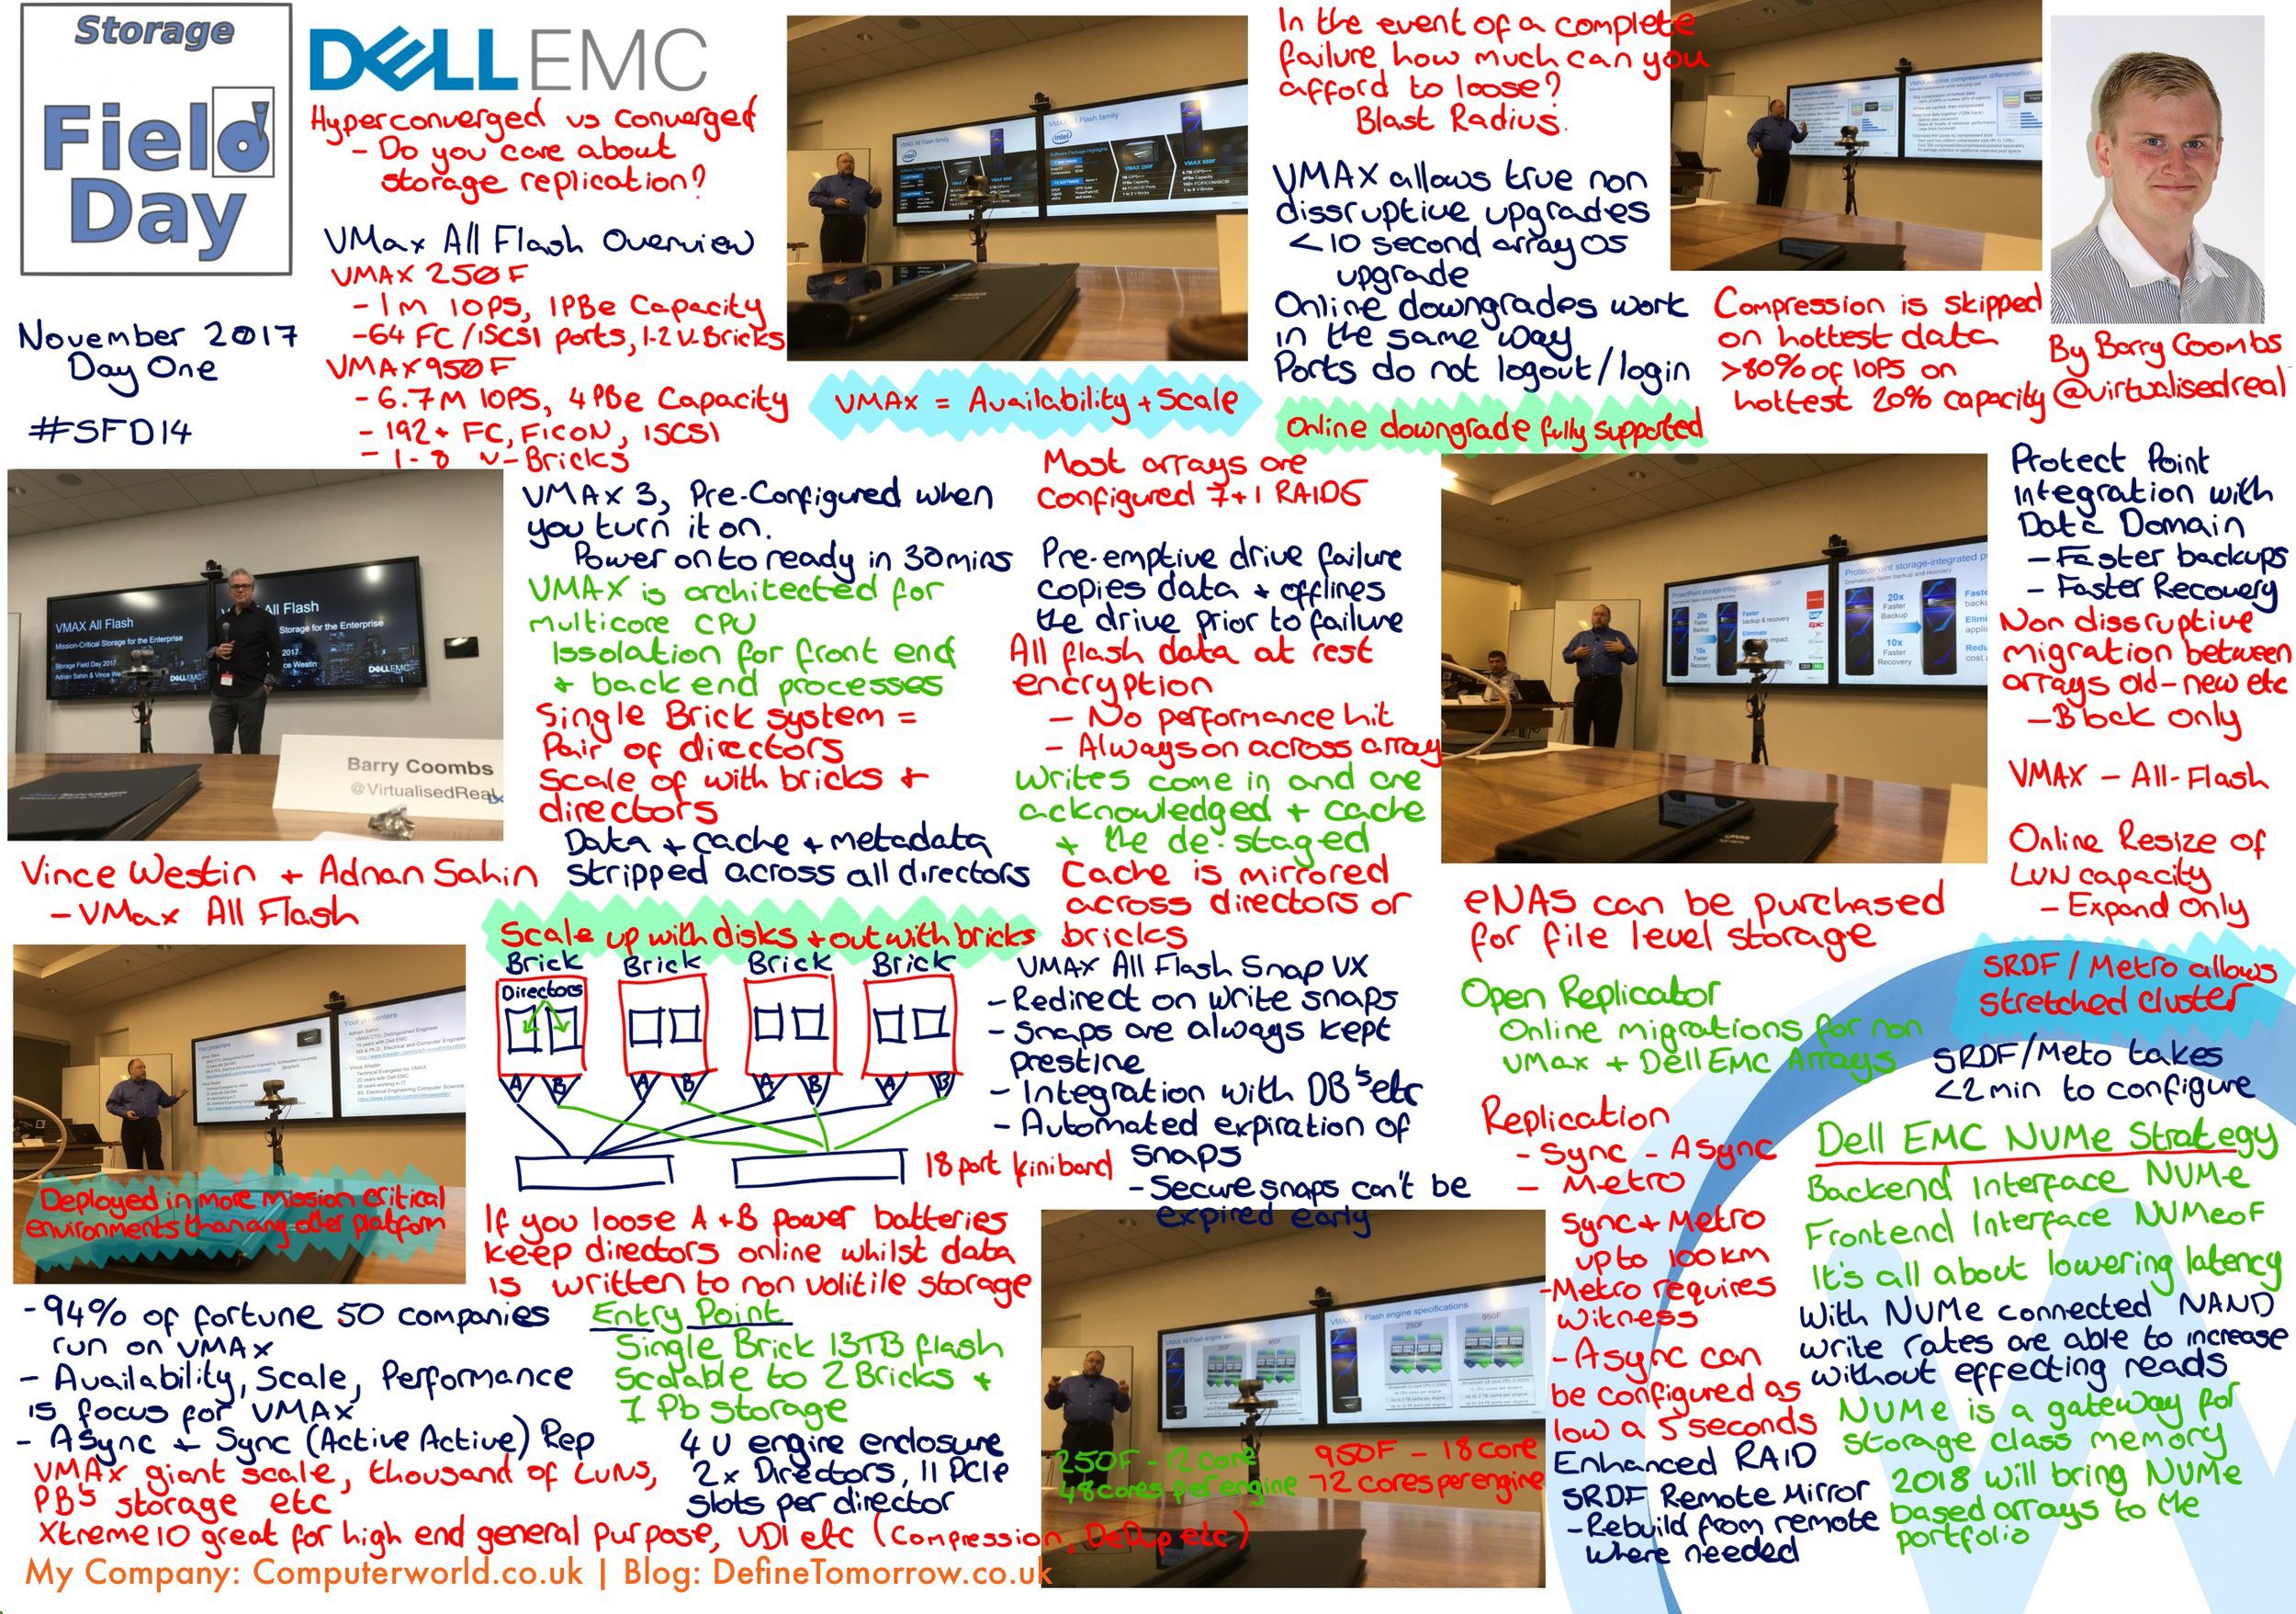 Storage
Field
Day
DELL EMC
November 2017
Day One
#SFD14
Hyperconverged vs converged
- Do you care about
storage replication?
VMax All Flash Overview
VMAX 250F
- 1m IOPS, 1PBe Capacity
- 64 FC/iSCSI ports, 1-2 V-Bricks
VMAX 950F
- 6.7M IOPS, 4PBe Capacity
- 192+ FC, FICON, iSCSI
- 1-8 V-Bricks
VMAX = Availability + Scale
In the event of a complete
failure how much can you
afford to loose?
Blast Radius.
VMAX allows true non
dissruptive upgrades
<10 second array OS
upgrade
Online downgrades work
in the same way
Ports do not logout/login
Online downgrade fully supported
Compression is skipped
on hottest data
>80% of IOPS on
hottest 20% capacity
By Barry Coombs
@virtualisedreal
VMAX All Flash
Mission-Critical Storage for the Enterprise
Storage Field Day 2017
Adnan Sahin & Vince We
All Flash
Storage for the Enterprise
2017
ce Westin
DELLEMC
Barry Coombs
@VirtualisedReal
Vince Westin + Adnan Sahin
- VMax All Flash
Deployed in more mission critical
environments than any other platform
- 94% of fortune 50 companies
run on VMAX
- Availability, Scale, Performance
is focus for VMAX
- Async + Sync (Active Active) Rep
VMAX giant scale, thousand of LUNS,
PB's storage etc
Xtremeio great for high end general purpose, VDI etc (Compression, DeDup etc)
My Company: Computerworld.co.uk | Blog: DefineTomorrow.co.uk
VMAX 3, Pre-Configured when
you turn it on.
Power on to ready in 30mins
VMAX is architected for
multicore CPU
Issolation for front end
+ back end processes
Single Brick system =
Pair of directors
Scale of with bricks +
directors
Data + cache + metadata
stripped across all directors
Scale up with disks + out with bricks
Brick Brick Brick Brick
Directors
A B A B A B A B
18 port
If you loose A+B power batteries
keep directors online whilst data
is written to non volitile storage
Entry Point
Single Brick 13TB flash
Scalable to 2 Bricks +
1 Pb storage
4U engine enclosure
2x Directors, 11 PCIe
slots per director
Most arrays are
configured 7+1 RAID5
Pre-emptive drive failure
copies data + offlines
the drive prior to failure
All flash data at rest
encryption
- No performance hit
- Always on across array
Writes come in and are
acknowledged + cache
+ the de-staged
Cache is mirrored
across directors or
bricks
VMAX All Flash Snap VX
- Redirect on write snaps
- Snaps are always kept
prestine
- Integration with DB's etc
- Automated expiration of
snaps
- Secure snaps can't be
expired early
250F
950F
250F - 12 core
48 cores per engine
950F - 18 core
72 cores per engine
ProtectPoint storage-integrated p
Dramatically faster backup and recovery
20x
Faster
Backup
10x
Faster
Recovery
eNAS can be purchased
for file level storage
Open Replicator
Online migrations for non
VMax + Dell EMC Arrays
Replication
- Sync - Async
- Metro
Sync + Metro
up to 100km
- Metro requires
witness
- Async can
be configured as
low a 5 seconds
Enhanced RAID
SRDF Remote Mirror
- Rebuild from remote
where needed
Protect Point
integration with
Data Domain
- Faster backups
- Faster Recovery
Non dissruptive
migration between
arrays old-new etc
- Block only
VMAX - All-Flash
Online Resize of
LUN capacity
- Expand only
SRDF/Metro allows
stretched cluster
SRDF/Meto takes
<2min to configure
Dell EMC NVMe Strategy
Backend Interface NVMe
Frontend Interface NVMeoF
It's all about lowering latency
With NVMe connected NAND
write rates are able to increase
without effecting reads
NVMe is a gateway for
storage class memory
2018 will bring NVMe
based arrays to the
portfolio